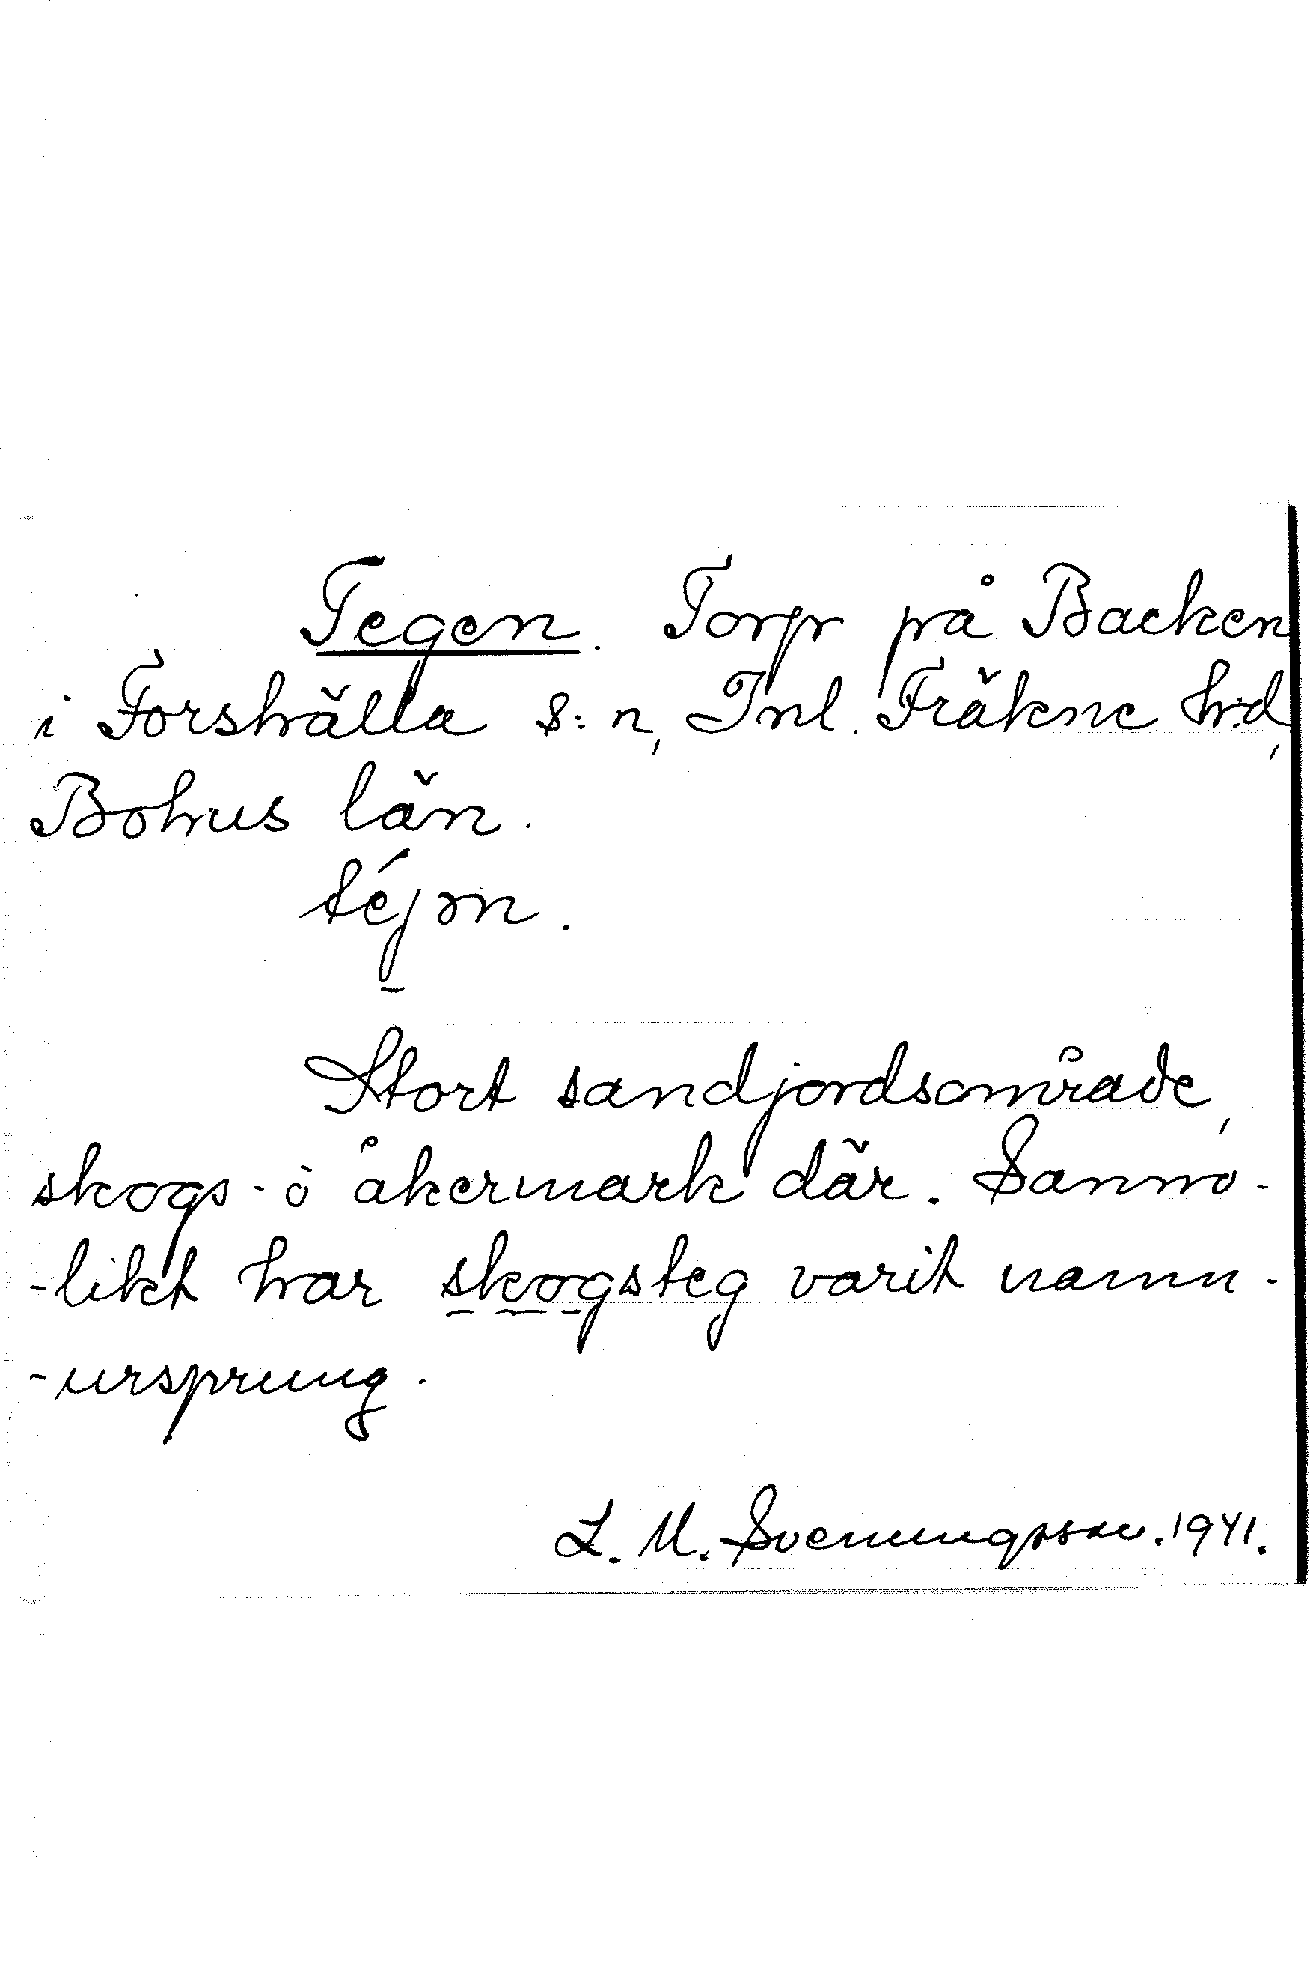 Tegen. Torp på Backen
i Forshälla s:n, Inl. Fräkne hd,
Bohus län.
téjən.
Stort sandjordsområde,
skogs- o åkermark där. Sanno-
-likt har skogsteg varit namn-
-ursprung.
L. M. Svenungsson. 1941.